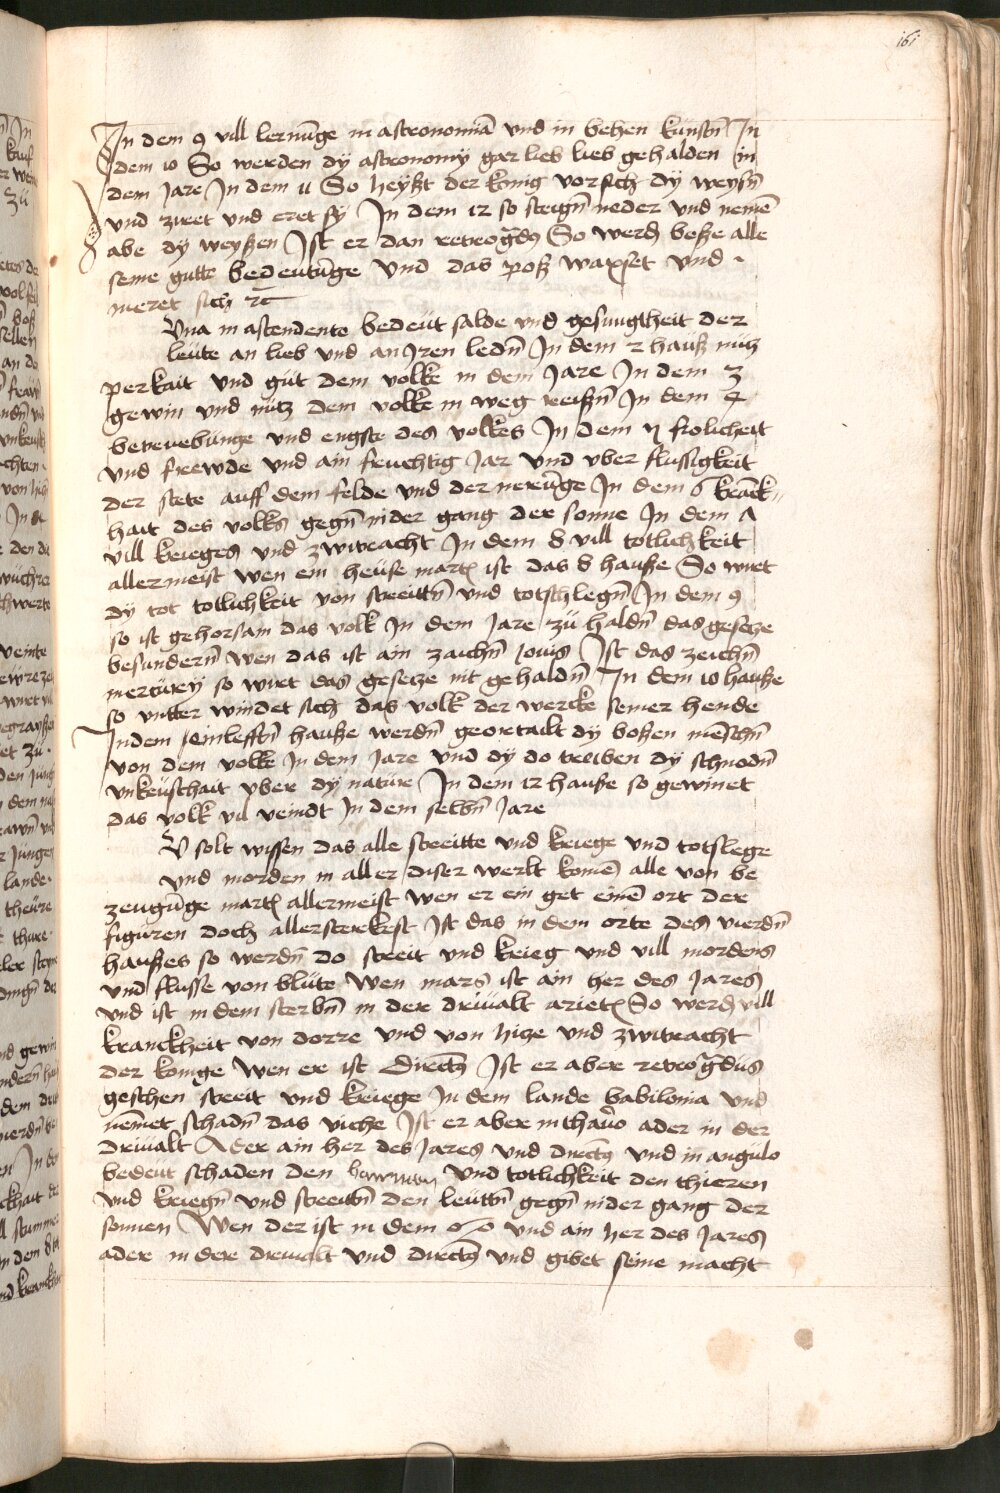 161
In dem 9 vill lernu̅ge in astronomia̅ vnd in behen kunste̅ In
dem 10 So werden dÿ astronomÿ gar lieb lieb gehalden in
dem Jare In dem 11 So heÿßt der konig vor sich dÿ weyse̅
vnd ziret vnd eret sÿ In dem 12 so steige̅ neder vnd neme̅
abe dÿ weyßen Ist er dan retrog̅dꝰ So werd̅ beße alle
seine gutte bedeutu̅ge Vnd das poß waxset vnd
meret sich ꝛc̅
Vna in astendente bedeüt salde vnd gesungtheit der
leüte an lieb vnd an Jren lede̅ In dem 2 hauß nutz
perkait vnd güt dem volke in dem Jare In dem 3
gewin vnd nütz dem volke in weg reiße̅ In dem 4
betruebünge vnd engste des volkes In dem 5 frolicheit
vnd frewde vnd ain fruchtig Jar vnd vber flussigkeit
der stete auff dem felde vnd der neru̅ge In dem 6 kra̅ck
hait des volks gege̅ nider gang der sonne In dem 7
vill krieges vnd zwitracht In dem 8 vill totlichkeit
allermeist wen ein heüse mart̅ ist das 8 hauße So wirt
dÿ tot totlichkeit von streitte̅ vnd totschlege̅ In dem 9
so ist gehorsam das volk In dem Jare zü halde̅ das gesetze
besundern̅ wen das ist ain zaiche̅ Jouis Ist das zeiche̅
mercürÿ so wirt das gesetze nit gehalde̅ In dem 10 hauße
so vntter windet sich das volk der wercke seiner hende
In dem einlefften̅ hauße werde̅ georteilt dÿ boßen me̅sche̅
von dem volke In dem Jare vnd dÿ do treiben dÿ schnode̅
vnkeüschait vber dÿ natüre In dem 12 hauße so gewinet
das volk vil veindt In dem selbe̅ Jare
V solt wissen das alle streitte vnd kriege vnd totslege
vnd morden in aller diser werlt kome̅ alle von be
zeugu̅ge mart̅ allermeist wen er ein get eine̅ ort der
figüren doch allersterkest Ist das in dem orte des vierde̅
haußes so werde̅ do streit vnd krieg vnd vill mordens
vnd flusse von blüte Wen mars ist ain her des Jares
vnd ist in dem sterbe̅ in der driualt ariet̅ So werd̅ vill
kranckheit von dorre vnd von hitze vnd zwitracht
der konige Wen er ist Directꝰ Ist er aber retrog̅dus
geschen streit vnd kriege In dem lande babilonia vnd
ne̅met schade̅ das viche Ist er aber in thauro ader in der
driualt Ader ain her des Jares vnd directꝰ vnd in angulo
bedeüt schaden den bawman vnd totlichkeit den thieren
vnd kriege̅ vnd streitte̅ den leütte̅ gege̅ nider gang der
sonnen Wen der ist in dem ♋ vnd ain her des Jares
ader in der driualt vnd directꝰ vnd gibet seine macht